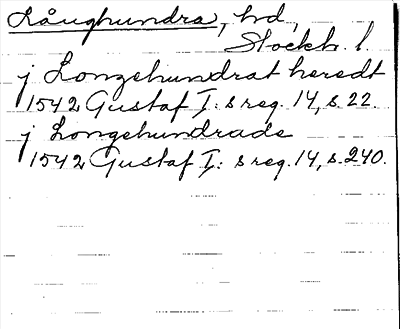 Långhundra, hd,
Stockh. l.
j Longehundrat heredt
1542 Gustaf I: s reg. 14, s. 22.
j Longehundrade
1542 Gustaf I: s reg. 14, s. 240.